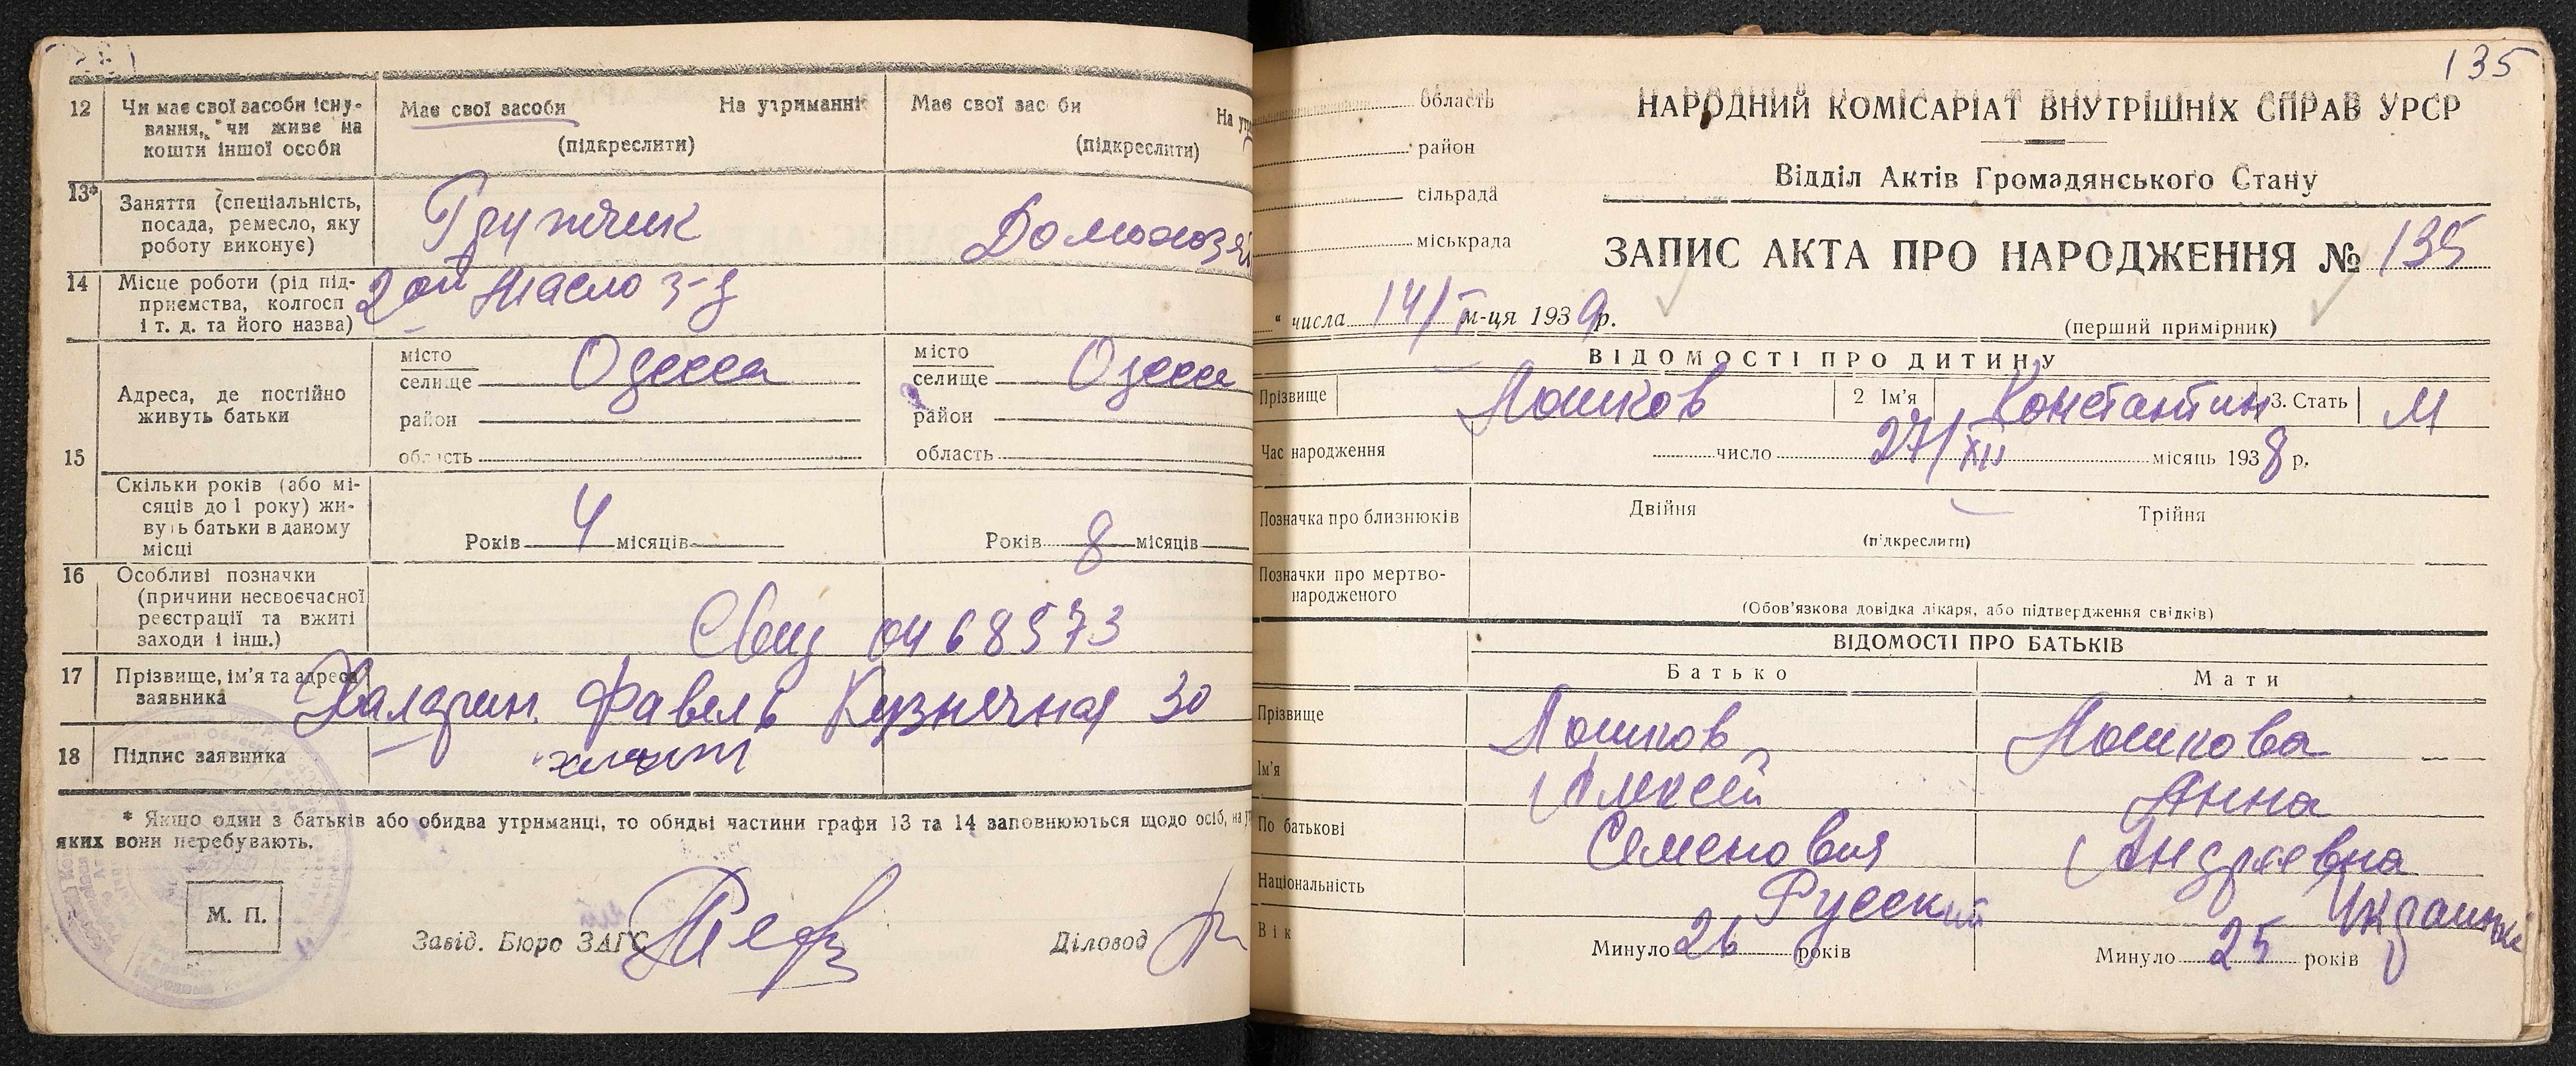 12 Чи має свої засоби існу-
вання, чи живе на
кошти іншої особи
Має свої засоби На утриманні
(підкреслити)
Має свої засоби На
(підкреслити)
13* Заняття (спеціальність,
посада, ремесло, яку
роботу виконує)
Грузчик
Домохозяй
14 Місце роботи (рід під-
приємства, колгосп
і т. д. та його назва)
2ой Масло з-д
Адреса, де постійно
живуть батьки
місто
селище Одесса
район
область
місто
селище Одесса
район
область
15
Скільки років (або мі-
сяців до 1 року) жи-
вуть батьки в даному
місці
Років 4 місяців
Років 8 місяців
16 Особливі позначки
(причини несвоєчасної
реєстрації та вжиті
заходи і інш.)
0468573
17 Прізвище, ім'я та адреса
заявника
Кузнечная 30
18 Підпис заявника
* Якщо один з батьків або обидва утриманці, то обидві частини графи 13 та 14 заповнюються щодо осіб, на
яких вони перебувають.
М. П.
Завід. Бюро ЗАГС
Діловод
135
область
район
сільрада
міськрада
НАРОДНИЙ КОМІСАРІАТ ВНУТРІШНІХ СПРАВ УРСР
Відділ Актів Громадянського Стану
ЗАПИС АКТА ПРО НАРОДЖЕННЯ № 135
" числа 14/I м-ця 1939 р.
(перший примірник)
ВІДОМОСТІ ПРО ДИТИНУ
Прізвище Мошков 2 Ім'я Константин 3. Стать М
Час народження число 27/XII місяць 1938 р.
Позначка про близнюків Двійня Трійня
(підкреслити)
Позначки про мертво-
народженого
(Обов'язкова довідка лікаря, або підтвердження свідків)
ВІДОМОСТІ ПРО БАТЬКІВ
Батько Мати
Прізвище Мошков Мошкова
Ім'я Алексей Анна
По батькові Семенович Андреевна
Національність Русский Украинка
Вік Минуло 26 років Минуло 25 років